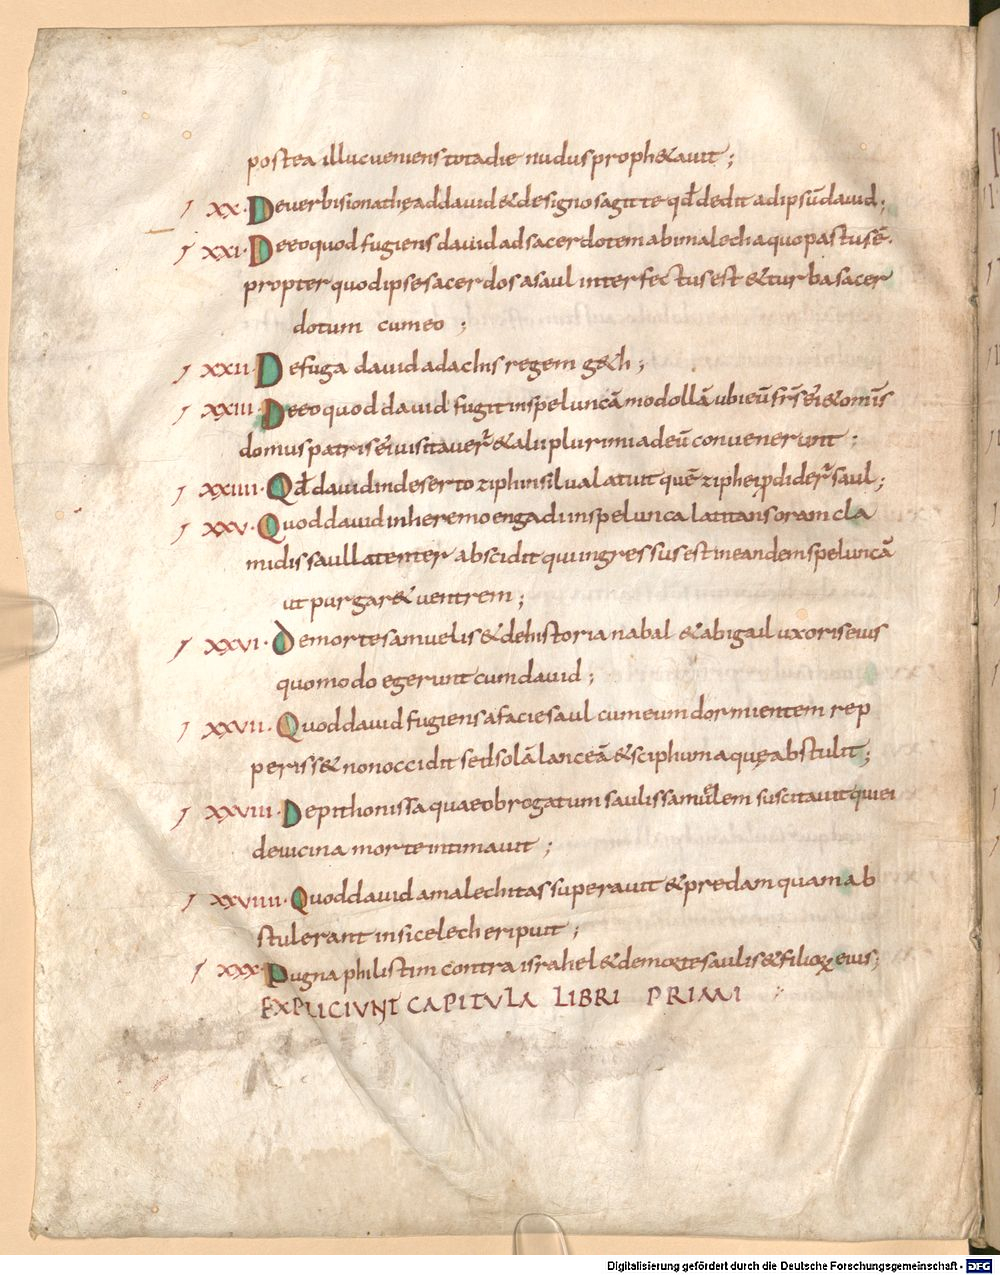 postea illuc ueniens tota die nudus proph&auit ;
XX · De uerbis ionathę ad dauid & de signo sagitte qđ dedit ad ipsū dauid ;
XXI · De eo quod fugiens dauid ad sacerdotem abimalech a quo pastus ē ·
propter quod ipse sacerdos a saul interfectus est & turba sacer
dotum cum eo ;
XXII · De fuga dauid ad achis regem g&h ;
XXIII · De eo quod dauid fugit in speluncā modollā ubi eū frs̄ ei & om̄s
domus patris ei uisitauer̄ & alii plurimi ad eū conuenerunt ;
XXIIII · Qđ dauid in deserto ziph in silua latuit quē ziphei ꝓdider̄ saul ;
XXV · Quod dauid in heremo engadi in spelunca latitans oram cla
midis saul latenter abscidit qui ingressus est in eandem speluncā
ut purgar& uentrem ;
XXVI · De morte samuelis & de historia nabal & abigail uxoris eius
quomodo egerunt cum dauid ;
XXVII · Quod dauid fugiens a facie saul cum eum dormientem rep
periss& non occidit sed solā lanceā & sciphum aquę abstulit ;
XXVIII · De pithonissa quae ob rogatum saulis samuelem suscitauit qui ei
de uicina morte intimauit ;
XXVIIII · Quod dauid amalechitas superauit & predam quam ab
stulerant in sicelech eripuit ;
XXX · Pugna philistim contra israhel & de morte saulis & filioꝝ eius ;
EXPLICIUNT CAPITULA LIBRI PRIMI
Digitalisierung gefördert durch die Deutsche Forschungsgemeinschaft - DFG